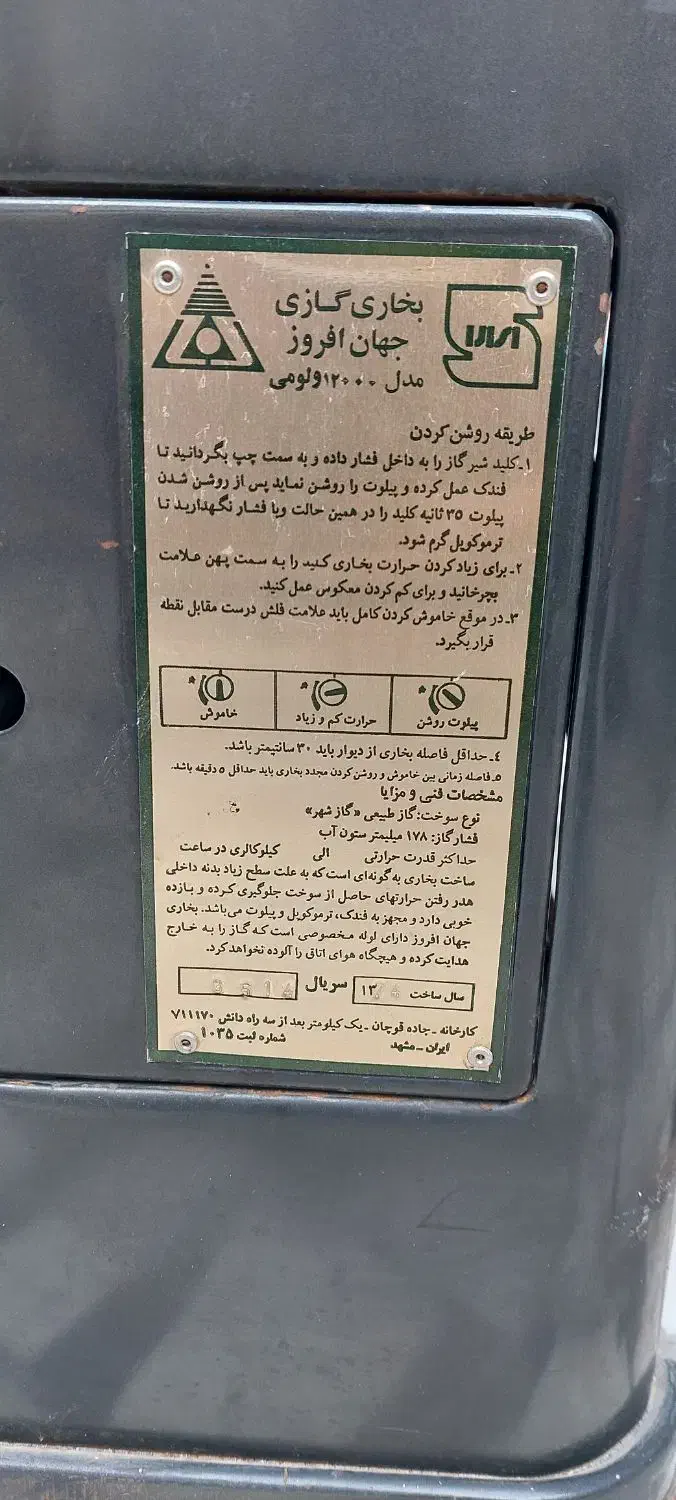 بخاری گازی
جهان افروز
مدل ۱۲۰۰۰ولومی
طریقه روشن کردن
۱ـ کلید شیر گاز را به داخل فشار داده و به سمت چپ بگردانید تا
فندک عمل کرده و پیلوت را روشن نماید پس از روشن شدن
پیلوت ۳۵ ثانیه کلید را در همین حالت وبا فشار نگهدارید تا
ترموکوپل گرم شود.
۲ـ برای زیاد کردن حرارت بخاری کلید را به سمت پهن علامت
بچرخانید و برای کم کردن معکوس عمل کنید.
۳ـ در موقع خاموش کردن کامل باید علامت فلش درست مقابل نقطه
قرار بگیرد.
پیلوت روشن
حرارت کم و زیاد
خاموش
٤ـ حداقل فاصله بخاری از دیوار باید ۳۰ سانتیمتر باشد.
۵ـ فاصله زمانی بین خاموش و روشن کردن مجدد بخاری باید حداقل ۵ دقیقه باشد.
مشخصات فنی و مزایا
نوع سوخت: گاز طبیعی «گاز شهر»
فشار گاز: ۱۷۸ میلیمتر ستون آب
حداکثر قدرت حرارتی الی کیلوکالری در ساعت
ساخت بخاری به گونه‌ای است که به علت سطح زیاد بدنه داخلی
هدر رفتن حرارتهای حاصل از سوخت جلوگیری کرده و بازده
خوبی دارد و مجهز به فندک، ترموکوپل و پیلوت می‌باشد. بخاری
جهان افروز دارای لوله مخصوصی است که گاز را به خارج
هدایت کرده و هیچگاه هوای اتاق را آلوده نخواهد کرد.
سال ساخت ۱۳ سریال
کارخانه ـ جاده قوچان ـ یک کیلومتر بعد از سه راه دانش ۷۱۱۱۷۰
ایران ـ مشهد شماره ثبت ۱۰۳۵